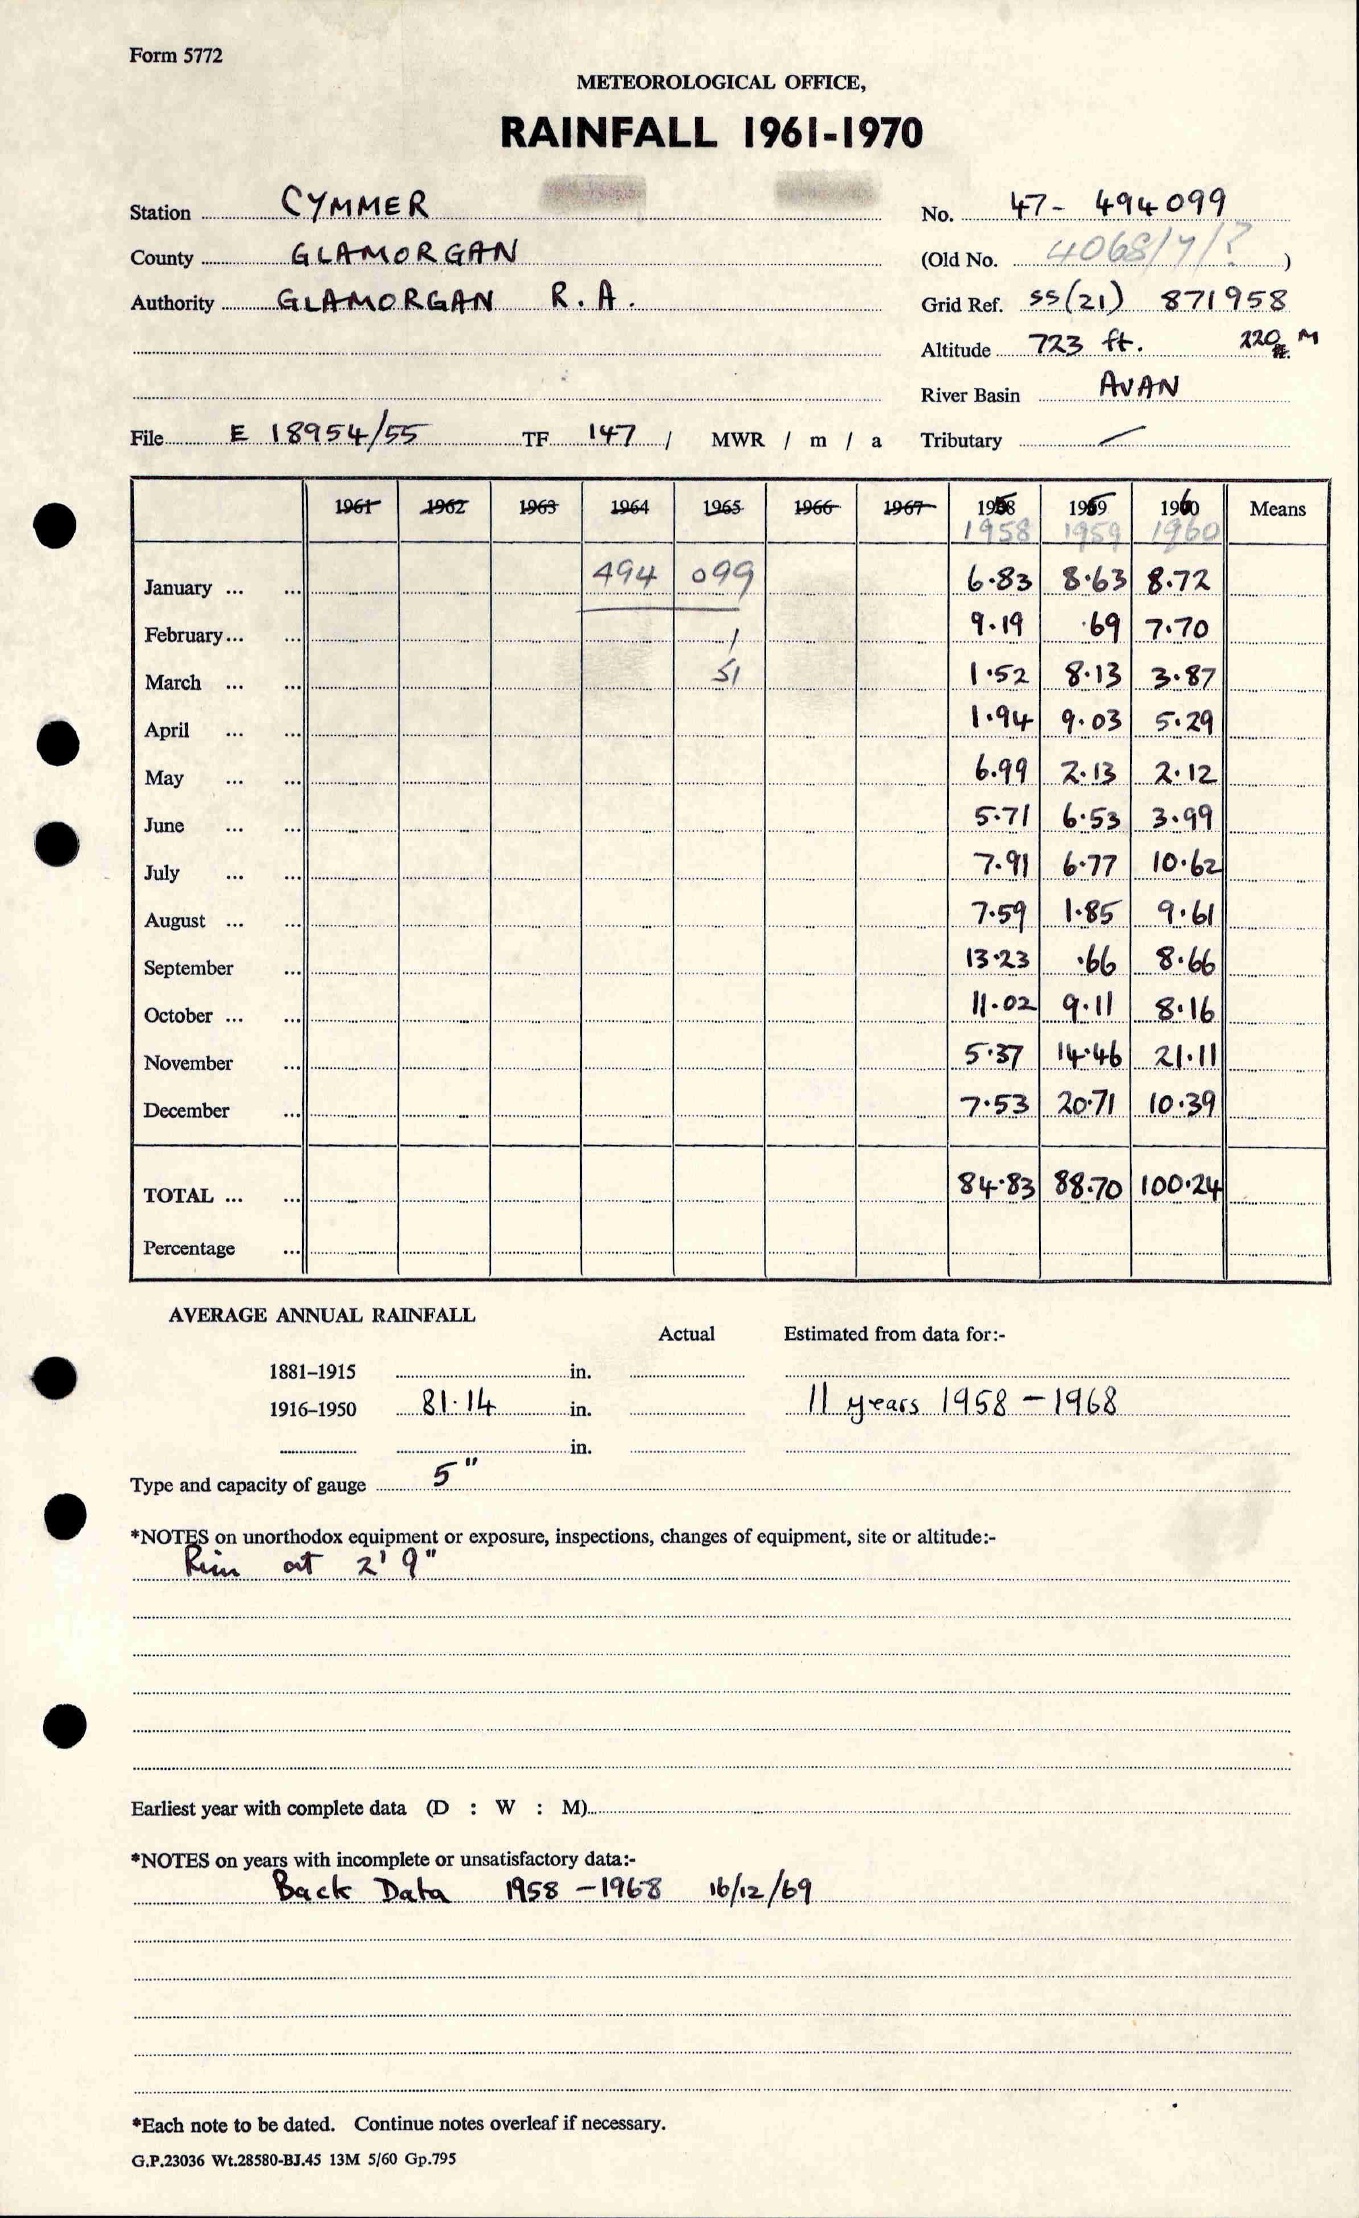 Form 5772
METEOROLOGICAL OFFICE,
RAINFALL 1961-1970
Station CYMMER No. 47- 494099
County GLAMORGAN (Old No. 4068/7/? )
Authority GLAMORGAN R.A. Grid Ref. SS(21) 871958
Altitude 723 ft. 220 ft. M
River Basin AVAN
File E 18954/55 TF 147 / MWR / m / a Tributary —
1961 1962 1963 1964 1965 1966 1967 1958 1959 1960 Means
1958 1959 1960
January ... ... 494 099 6.83 8.63 8.72
February ... ... 1 9.19 .69 7.70
March ... ... 51 1.52 8.13 3.87
April ... ... 1.94 9.03 5.29
May ... ... 6.99 2.13 2.12
June ... ... 5.71 6.53 3.99
July ... ... 7.91 6.77 10.62
August ... ... 7.59 1.85 9.61
September ... 13.23 .66 8.66
October ... ... 11.02 9.11 8.16
November ... 5.37 14.46 21.11
December ... 7.53 20.71 10.39
TOTAL ... ... 84.83 88.70 100.24
Percentage ...
AVERAGE ANNUAL RAINFALL
Actual Estimated from data for:-
1881-1915 in.
1916-1950 81.14 in. 11 years 1958 - 1968
in.
Type and capacity of gauge 5"
*NOTES on unorthodox equipment or exposure, inspections, changes of equipment, site or altitude:-
Rim at 2' 9"
Earliest year with complete data (D : W : M)
*NOTES on years with incomplete or unsatisfactory data:-
Back Data 1958 - 1968 16/12/69
*Each note to be dated. Continue notes overleaf if necessary.
G.P.23036 Wt.28580-BJ.45 13M 5/60 Gp.795